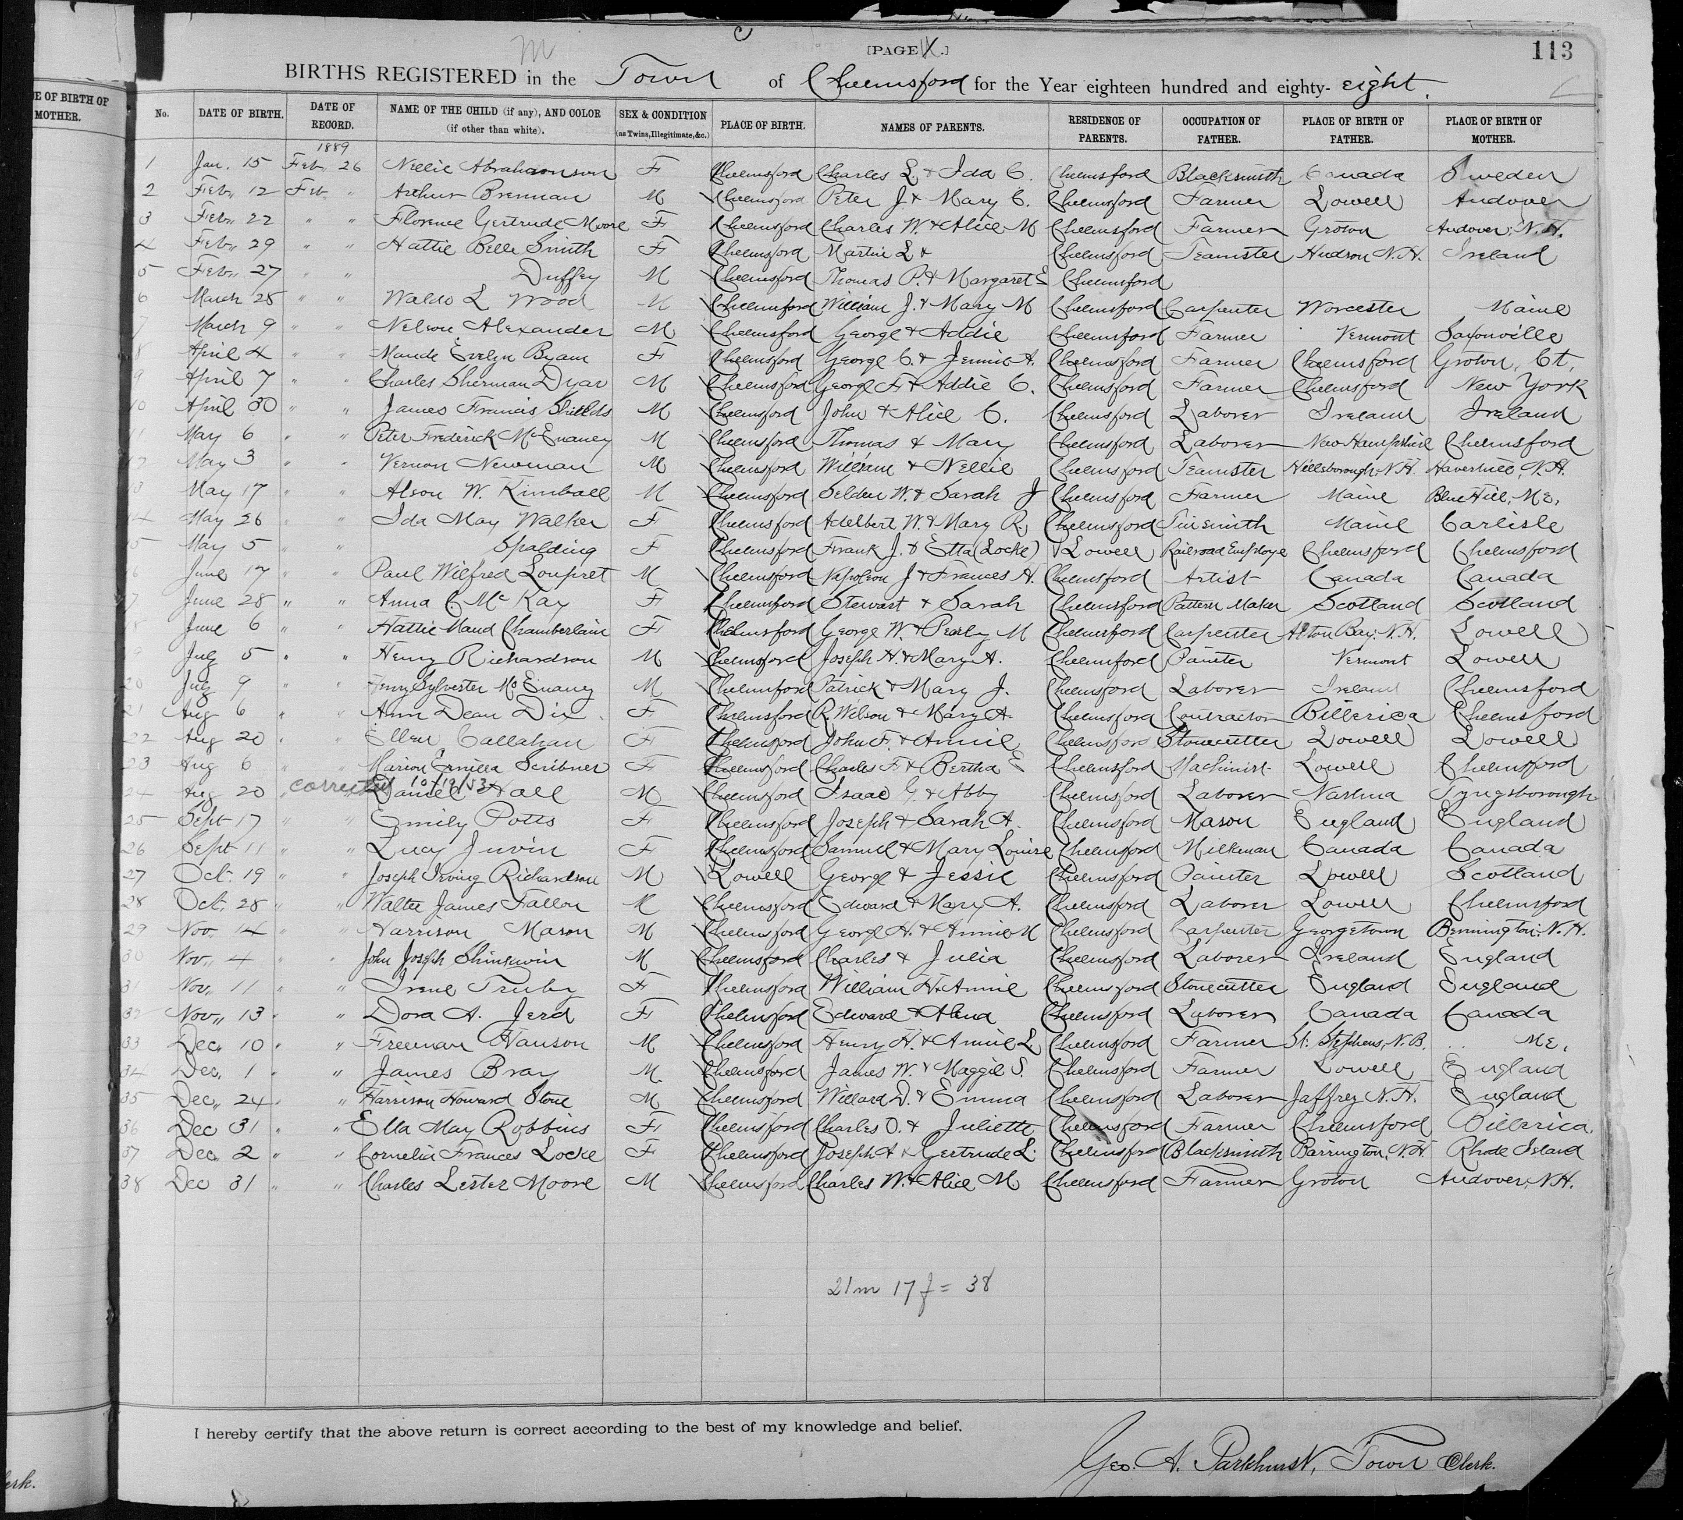 E OF BIRTH OF
MOTHER.
lerk.
m
c
[PAGE X.]
113
BIRTHS REGISTERED in the Town of Chelmsford for the Year eighteen hundred and eighty-eight.
No. DATE OF BIRTH. DATE OF RECORD. NAME OF THE CHILD (if any), AND COLOR (if other than white). SEX & CONDITION (as Twins, Illegitimate, &c.) PLACE OF BIRTH. NAMES OF PARENTS. RESIDENCE OF PARENTS. OCCUPATION OF FATHER. PLACE OF BIRTH OF FATHER. PLACE OF BIRTH OF MOTHER.
1889
1 Jan. 15 Feb. 26 Nellie Abrahamson F Chelmsford Charles L. & Ida C. Chelmsford Blacksmith Canada Sweden
2 Feb. 12 Feb. " Arthur Brennan M Chelmsford Peter J. & Mary E. Chelmsford Farmer Lowell Andover
3 Feb. 22 " " Florence Gertrude Moore F Chelmsford Charles W. & Alice M Chelmsford Farmer Groton Andover, N.H.
4 Feb. 29 " " Hattie Belle Smith F Chelmsford Martin L & Chelmsford Teamster Hudson N.H. Ireland
5 Feb. 27 " " Duffey M Chelmsford Thomas P. & Margaret E Chelmsford
6 March 28 " " Waldo L Wood M Chelmsford William J. & Mary M Chelmsford Carpenter Worcester Maine
7 March 9 " " Nelson Alexander M Chelmsford George & Addie Chelmsford Farmer Vermont Saxonville
8 April 4 " " Maude Evelyn Byam F Chelmsford George C. & Jennie A. Chelmsford Farmer Chelmsford Groton, Ct,
9 April 7 " " Charles Sherman Dyar M Chelmsford George F. & Addie C. Chelmsford Farmer Chelmsford New York
10 April 30 " " James Francis Shields M Chelmsford John & Alice C. Chelmsford Laborer Ireland Ireland
11 May 6 " " Peter Frederick McEnaney M Chelmsford Thomas & Mary Chelmsford Laborer New Hampshire Chelmsford
12 May 3 " " Vernon Newman M Chelmsford William & Nellie Chelmsford Teamster Hillsborough, N.H. Haverhill, N.H.
13 May 17 " " Alson W. Kimball M Chelmsford Selden W. & Sarah J Chelmsford Farmer Maine Blue Hill, Me,
14 May 26 " " Ida May Walker F Chelmsford Adelbert W. & Mary R. Chelmsford Tinsmith Maine Carlisle
15 May 5 " " Spalding F Chelmsford Frank J. & Etta (Locke) Lowell Railroad Employe Chelmsford Chelmsford
16 June 17 " " Paul Wilfred Loupret M Chelmsford Napoleon J & Frances H. Chelmsford Artist Canada Canada
17 June 28 " " Anna C. McKay F Chelmsford Stewart & Sarah Chelmsford Pattern Maker Scotland Scotland
18 June 6 " " Hattie Maud Chamberlain F Chelmsford George W. & Pearly M Chelmsford Carpenter Alton Bay, N.H. Lowell
19 July 5 " " Henry Richardson M Chelmsford Joseph H. & Mary A. Chelmsford Painter Vermont Lowell
20 July 9 " " Henry Sylvester McEnaney M Chelmsford Patrick & Mary J. Chelmsford Laborer Ireland Chelmsford
21 Aug 6 " " Ann Dean Dix F Chelmsford R. Wilson & Mary A. Chelmsford Contractor Billerica Chelmsford
22 Aug 20 " " Ellen Callahan F Chelmsford John F. & Annie Chelmsford Stonecutter Lowell Lowell
23 Aug 6 " " Marion Ermilla Scribner F Chelmsford Charles F. & Bertha E Chelmsford Machinist Lowell Chelmsford
corrected 10/19/53
24 Aug 20 " Daniel Hall M Chelmsford Isaac G & Abby Chelmsford Laborer Nashua Tyngsborough
25 Sept 17 " " Emily Potts F Chelmsford Joseph & Sarah A. Chelmsford Mason England England
26 Sept 11 " " Lucy Juvin F Chelmsford Samuel & Mary Louise Chelmsford Milkman Canada Canada
27 Oct. 19 " " Joseph Irving Richardson M Lowell George & Jessie Chelmsford Painter Lowell Scotland
28 Oct. 28 " " Walter James Fallon M Chelmsford Edward & Mary A. Chelmsford Laborer Lowell Chelmsford
29 Nov. 14 " " Harrison Mason M Chelmsford George H. & Annie M Chelmsford Carpenter Georgetown Bennington, N.H.
30 Nov. 4 " " John Joseph Shinkwin M Chelmsford Charles & Julia Chelmsford Laborer Ireland England
31 Nov. 11 " " Irene Truby F Chelmsford William H. Annie Chelmsford Stonecutter England England
32 Nov. 13 " " Dora A. Jerd F Chelmsford Edward & Alena Chelmsford Laborer Canada Canada
33 Dec. 10 " " Freeman Hanson M Chelmsford Henry H. & Annie L Chelmsford Farmer St. Stephens, N.B. Me,
34 Dec. 1 " " James Bray M Chelmsford James W. & Maggie S. Chelmsford Farmer Lowell England
35 Dec. 24 " " Harrison Howard Stone M Chelmsford Willard D. & Emma Chelmsford Laborer Jaffrey N.H. England
36 Dec 31 " " Ella May Robbins F Chelmsford Charles O. & Juliette Chelmsford Farmer Chelmsford Billerica
37 Dec. 2 " " Cornelia Frances Locke F Chelmsford Joseph A & Gertrude L. Chelmsford Blacksmith Barrington, N.H Rhode Island
38 Dec 31 " " Charles Lester Moore M Chelmsford Charles W. & Alice M Chelmsford Farmer Groton Andover, N.H.
21m 17f = 38
I hereby certify that the above return is correct according to the best of my knowledge and belief.
Geo. A. Parkhurst, Town Clerk.